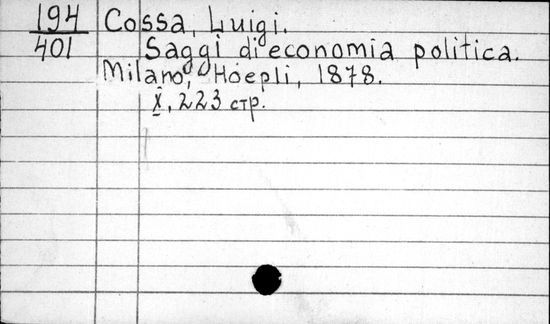 194 Cossa, Luigi.
401 Saggi di economia politica.
Milano, Hoepli, 1878.
X, 223 стр.